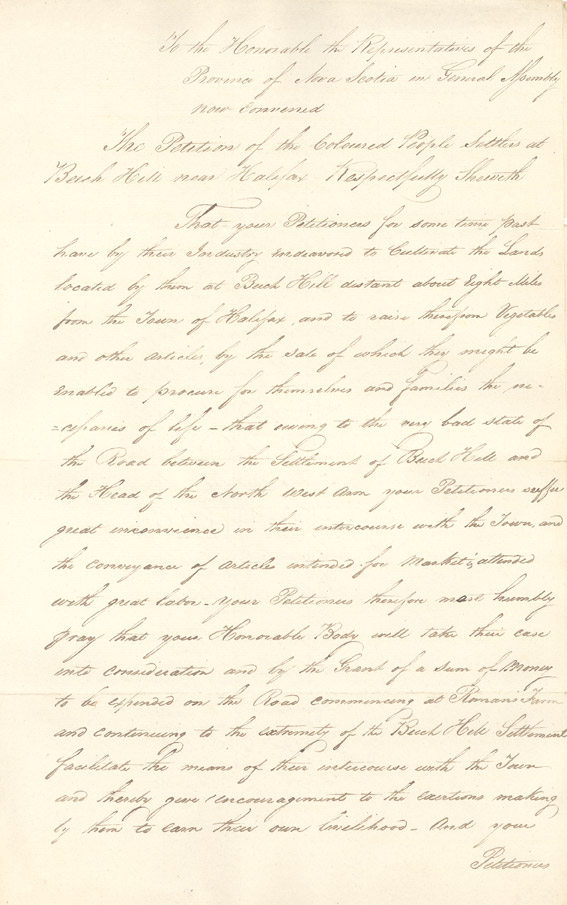 To the Honorable the Representatives of the
Province of Nova Scotia in General Assembly
now convened
The Petition of the Coloured People Settlers at
Beech Hill near Halifax Respectfully Sheweth
That your Petitioners for some time past
have by their Industry endeavored to Cultivate the Lands
located by them at Beech Hill distant about Eight Miles
from the Town of Halifax, and to raise therefrom Vegetables
and other articles, by the sale of which they might be
enabled to procure for themselves and families the ne-
=cessaries of life - that owing to the very bad state of
the Road between the Settlement of Beech Hill and
the Head of the North West Arm your Petitioners suffer
great inconvience in their intercourse with the Town, and
the conveyance of articles intended for Market is attended
with great labor - Your Petitioners therefore most humbly
pray that your Honorable Body will take their case
into consideration and by the Grant of a sum of Money
to be expended on the Road commencing at Romans Farm
and continuing to the extremity of the Beech Hill Settlement
facilitate the means of their intercourse with the Town
and thereby give encouragement to the exertions making
by them to earn their own livelihood - And your
Petitioners